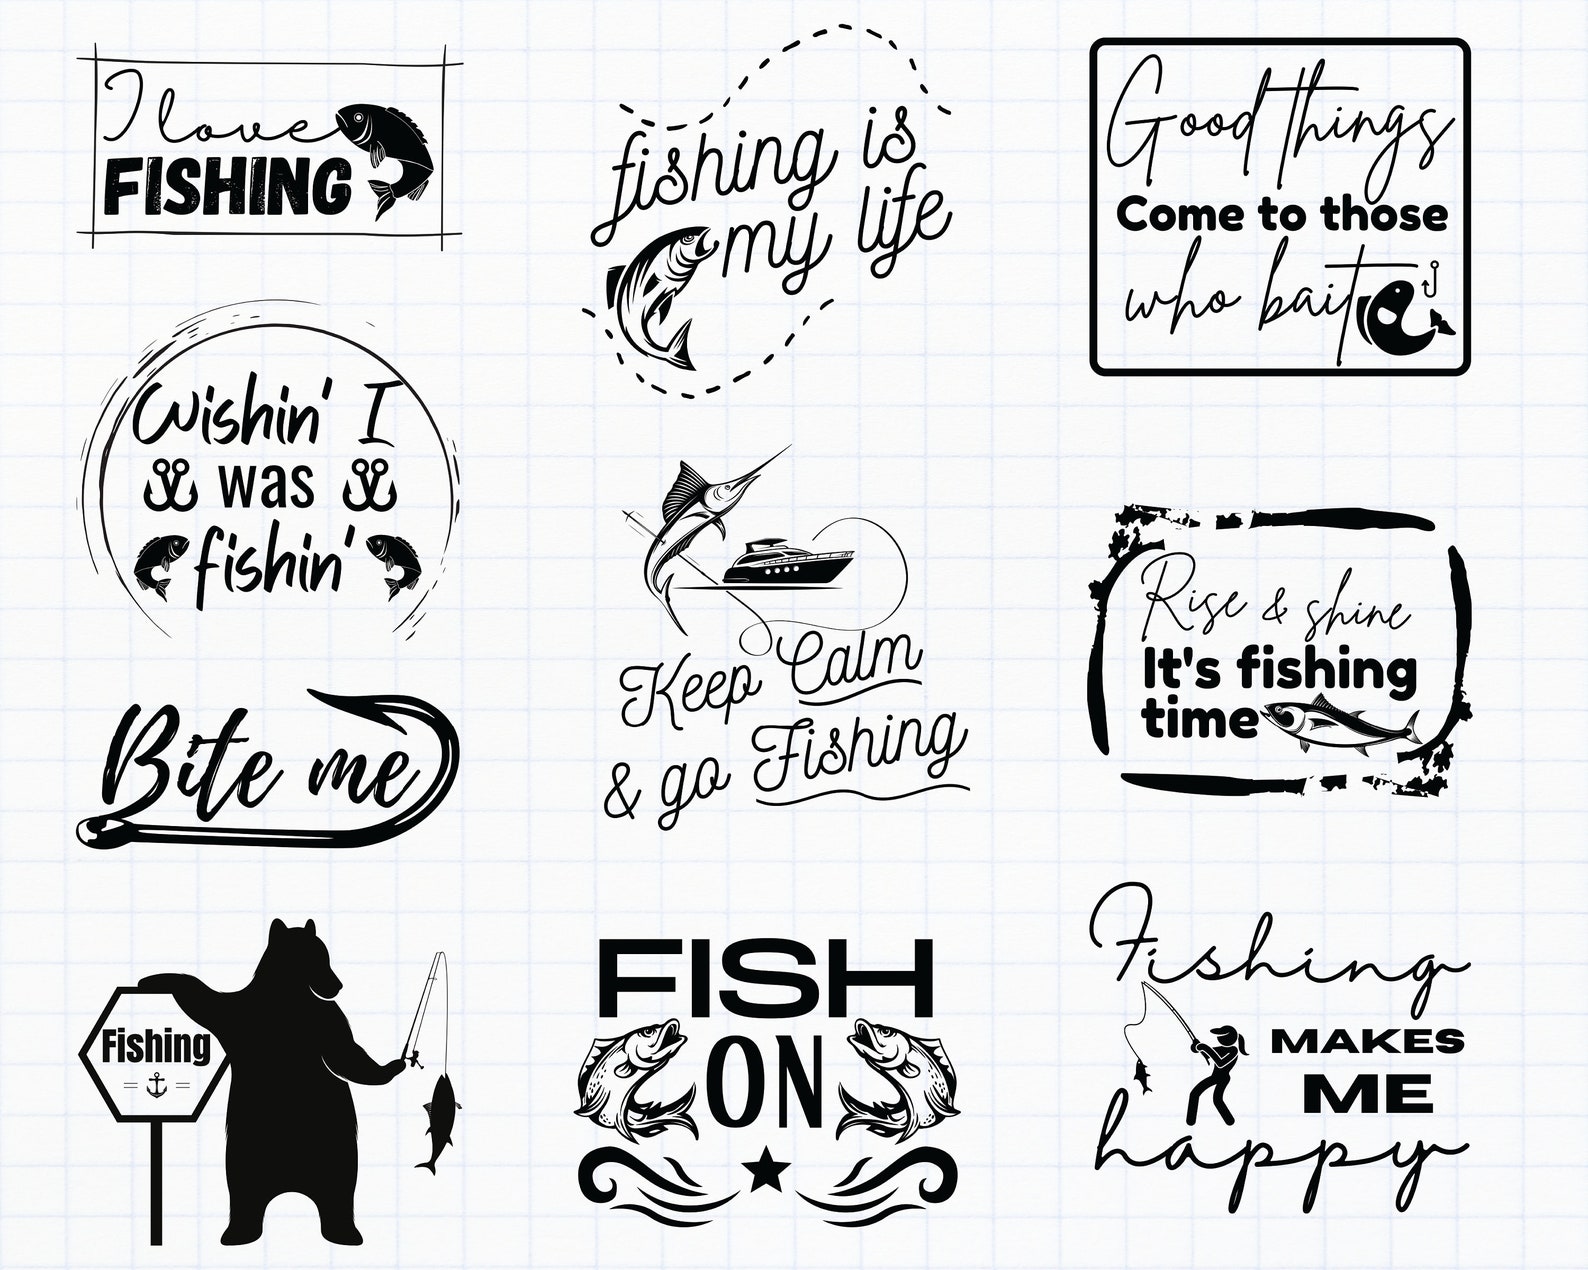 I love
FISHING
fishing is
my life
Good things
Come to those
who bait
Wishin' I
was
fishin'
Keep Calm
& go Fishing
Rise & shine
It's fishing
time
Bite me
Fishing
FISH
ON
Fishing
MAKES
ME
happy